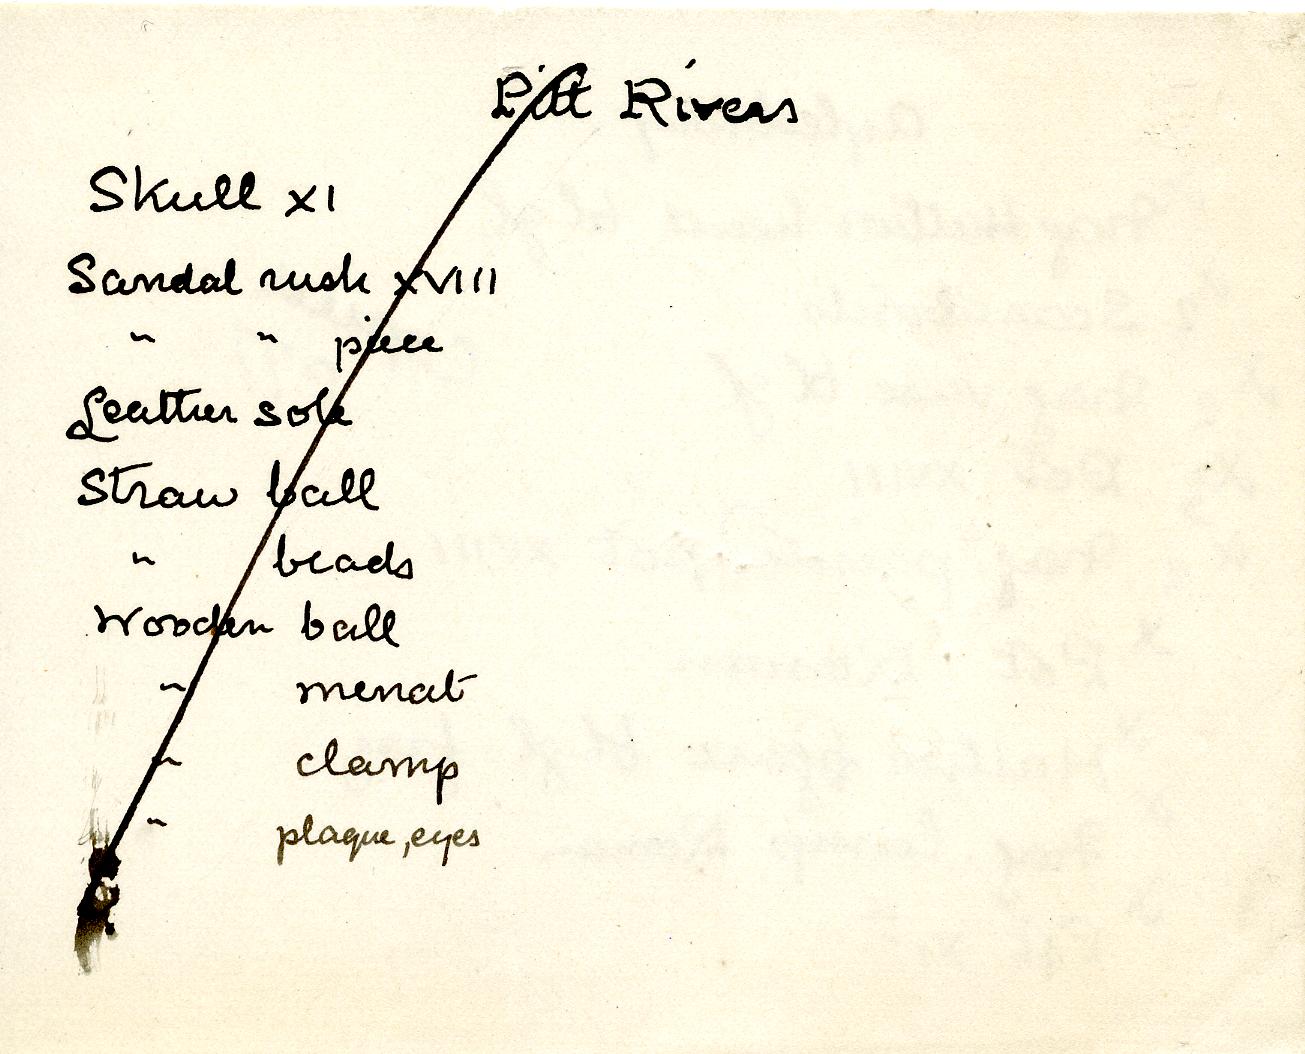 Pitt Rivers
Skull XI
Sandal rush XVIII
" " piece
Leather sole
Straw ball
" beads
Wooden ball
" menat
" clamp
" plaque, eyes